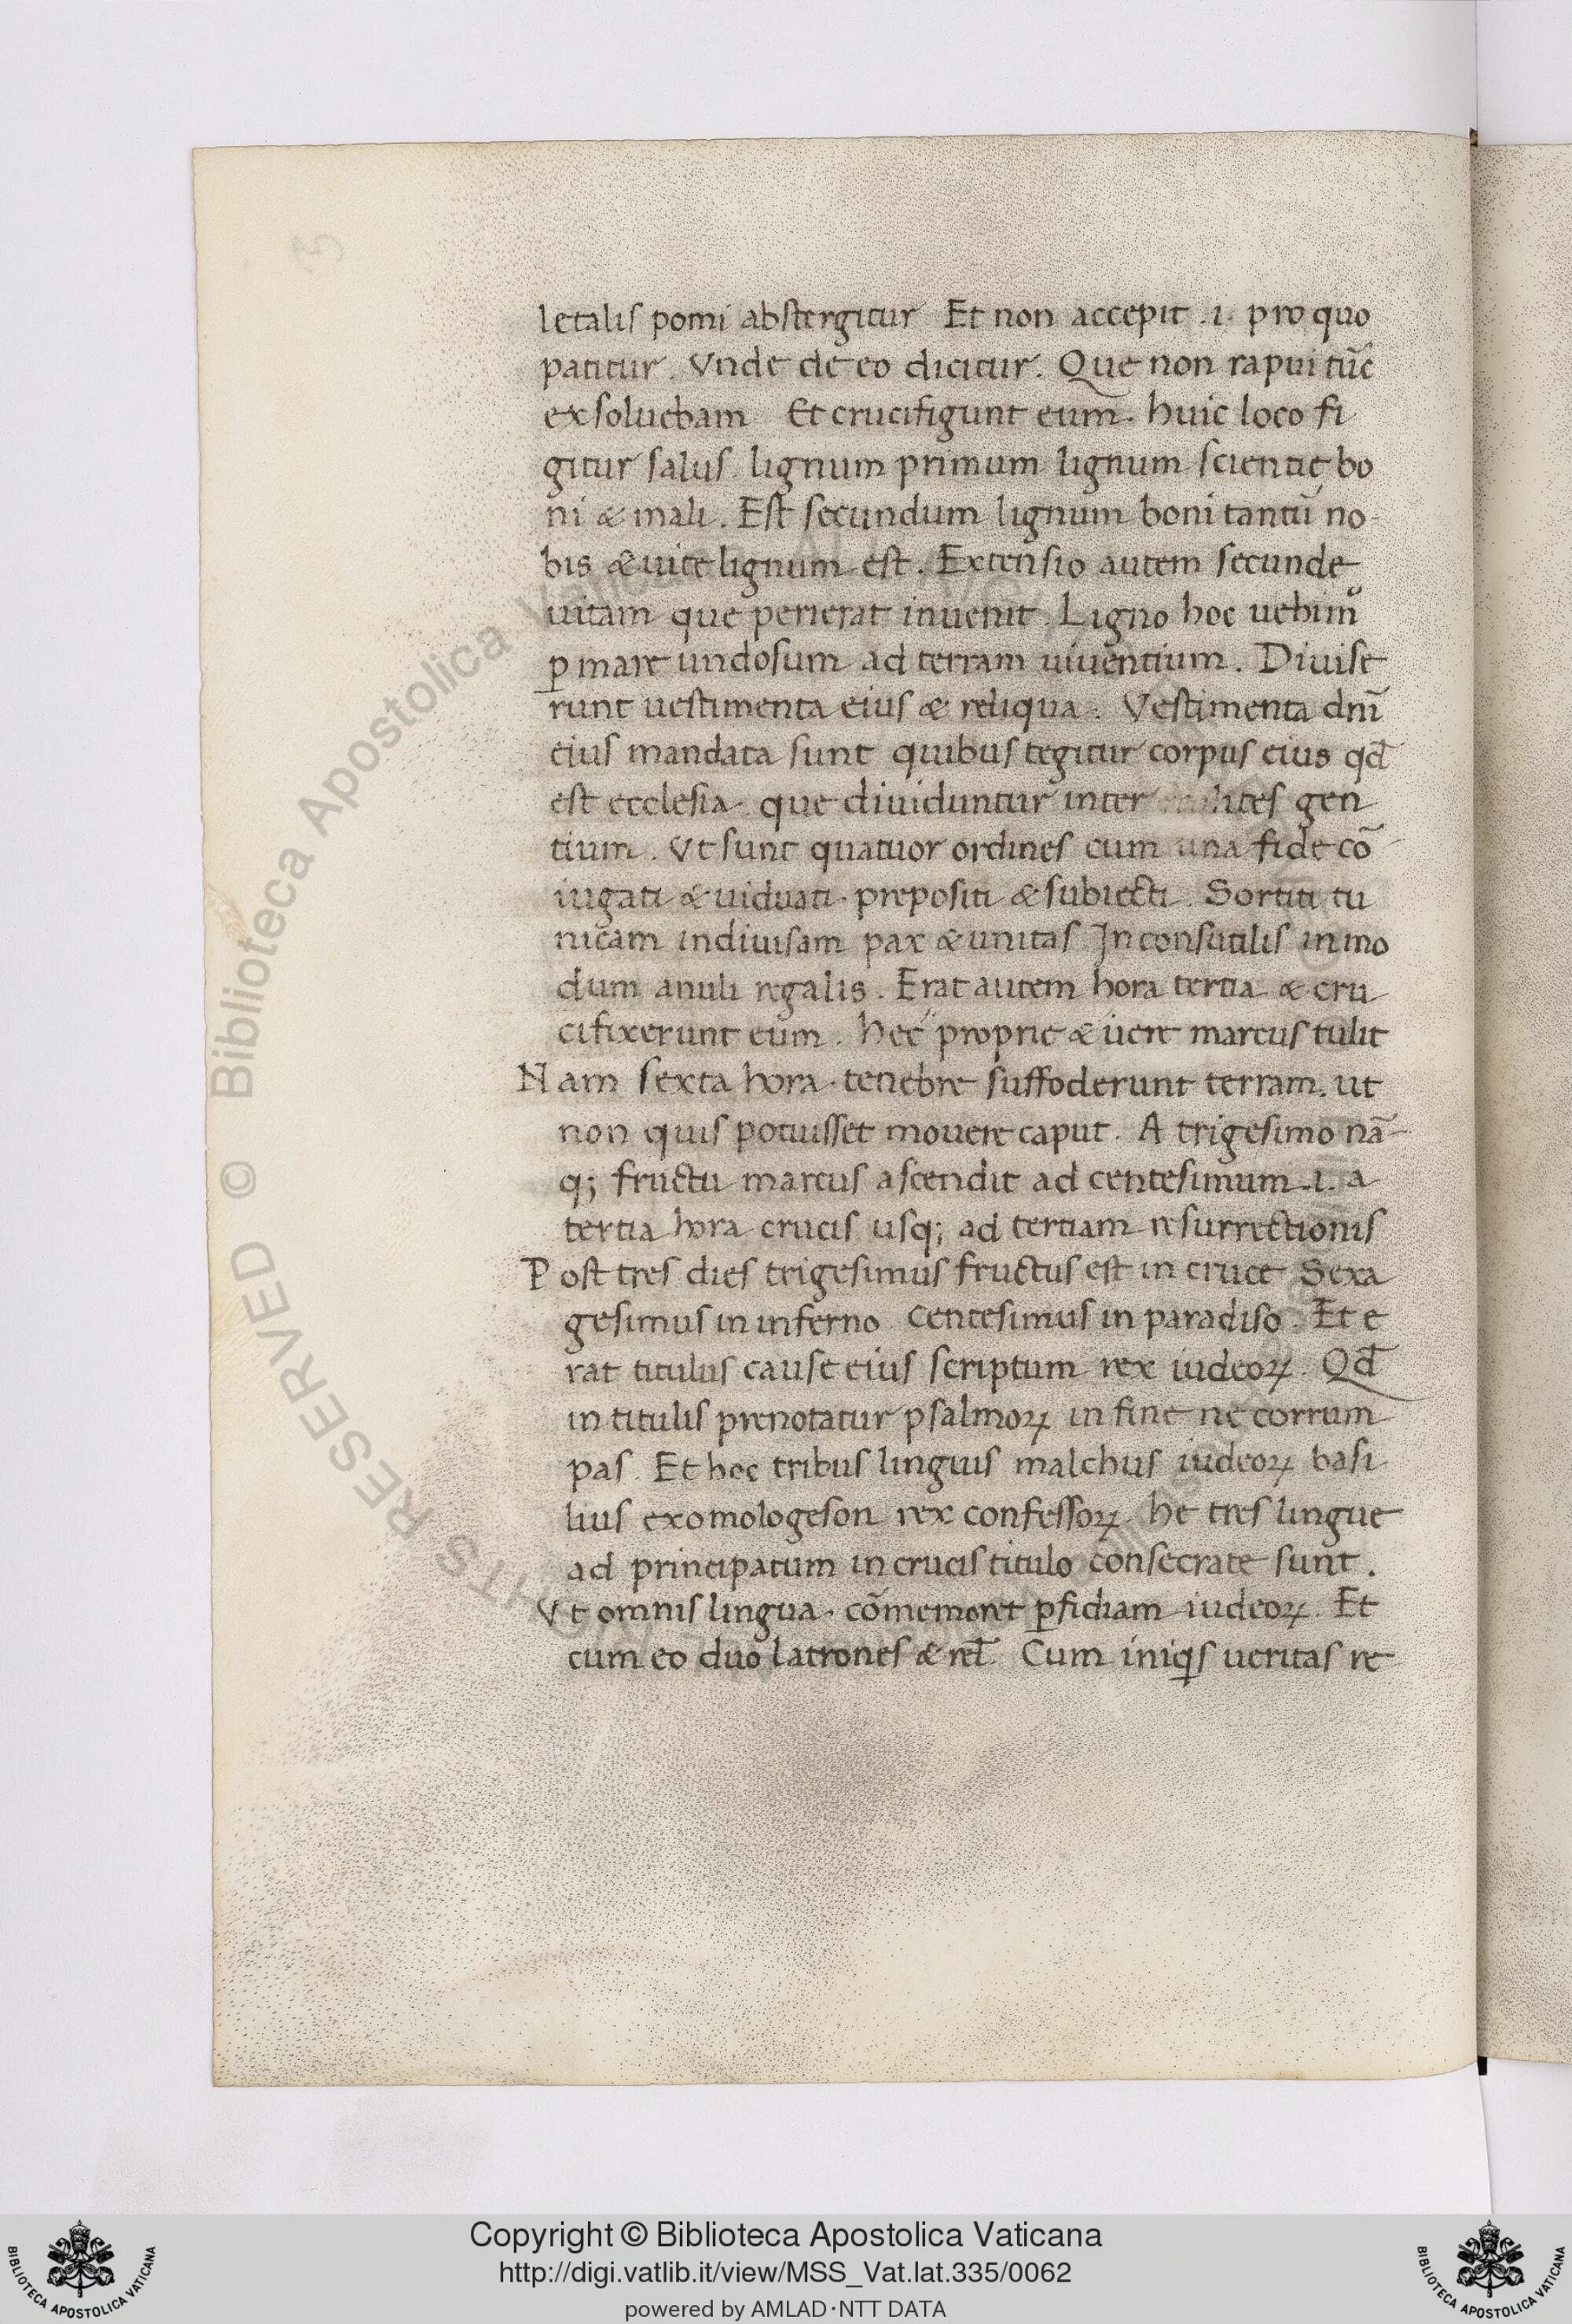 letalis pomi abstergitur Et non accepit .i. pro quo
patitur. Vnde de eo dicitur. Que non rapui tūc
exsoluebam Et crucifigunt eum. huic loco fi
gitur salus. lignum primum lignum scientię bo
ni & mali. Est secundum lignum boni tantū no-
bis & uite lignum est. Extensio autem secunde
uitam que perierat inuenit. Ligno hoc uehimꝰ
ꝑ mare undosum ad terram uiuentium. Diuise
runt uestimenta eius & reliqua. Vestimenta dnī
eius mandata sunt quibus tegitur corpus eius qđ
est ecclesia. que diuiduntur inter gen
tium. Vt sunt quatuor ordines cum una fide cō
iugati & uiduati. prepositi & subiecti. Sortiti tu
nicam indiuisam pax & unitas Inconsutilis in mo
dum anuli regalis. Erat autem hora tertia & cru
cifixerunt eum. hec proprie & uere marcus tulit
Nam sexta hora. tenebre suffoderunt terram. ut
non quis potuisset mouere caput. A trigesimo nā-
q; fructu marcus ascendit ad centesimum .i. a
tertia hora crucis usq; ad tertiam resurrectionis
Post tres dies trigesimus fructus est in cruce Sexa
gesimus in inferno Centesimus in paradiso. Et e
rat titulus cause eius scriptum rex iudeoꝝ. Qđ
in titulis prenotatur psalmoꝝ in fine ne corrum
pas. Et hoc tribus linguis malchus iudeoꝝ basi
lius exomologeson rex confessoꝝ. he tres lingue
ad principatum in crucis titulo consecrate sunt.
Vt omnis lingua. cōmemoret ꝑfidiam iudeoꝝ. Et
cum eo duo latrones & rel̄. Cum iniqis ueritas re
© Biblioteca Apostolica Vaticana
RESERVED
Copyright © Biblioteca Apostolica Vaticana
http://digi.vatlib.it/view/MSS_Vat.lat.335/0062
powered by AMLAD·NTT DATA
BIBLIOTECA APOSTOLICA VATICANA
BIBLIOTECA APOSTOLICA VATICANA